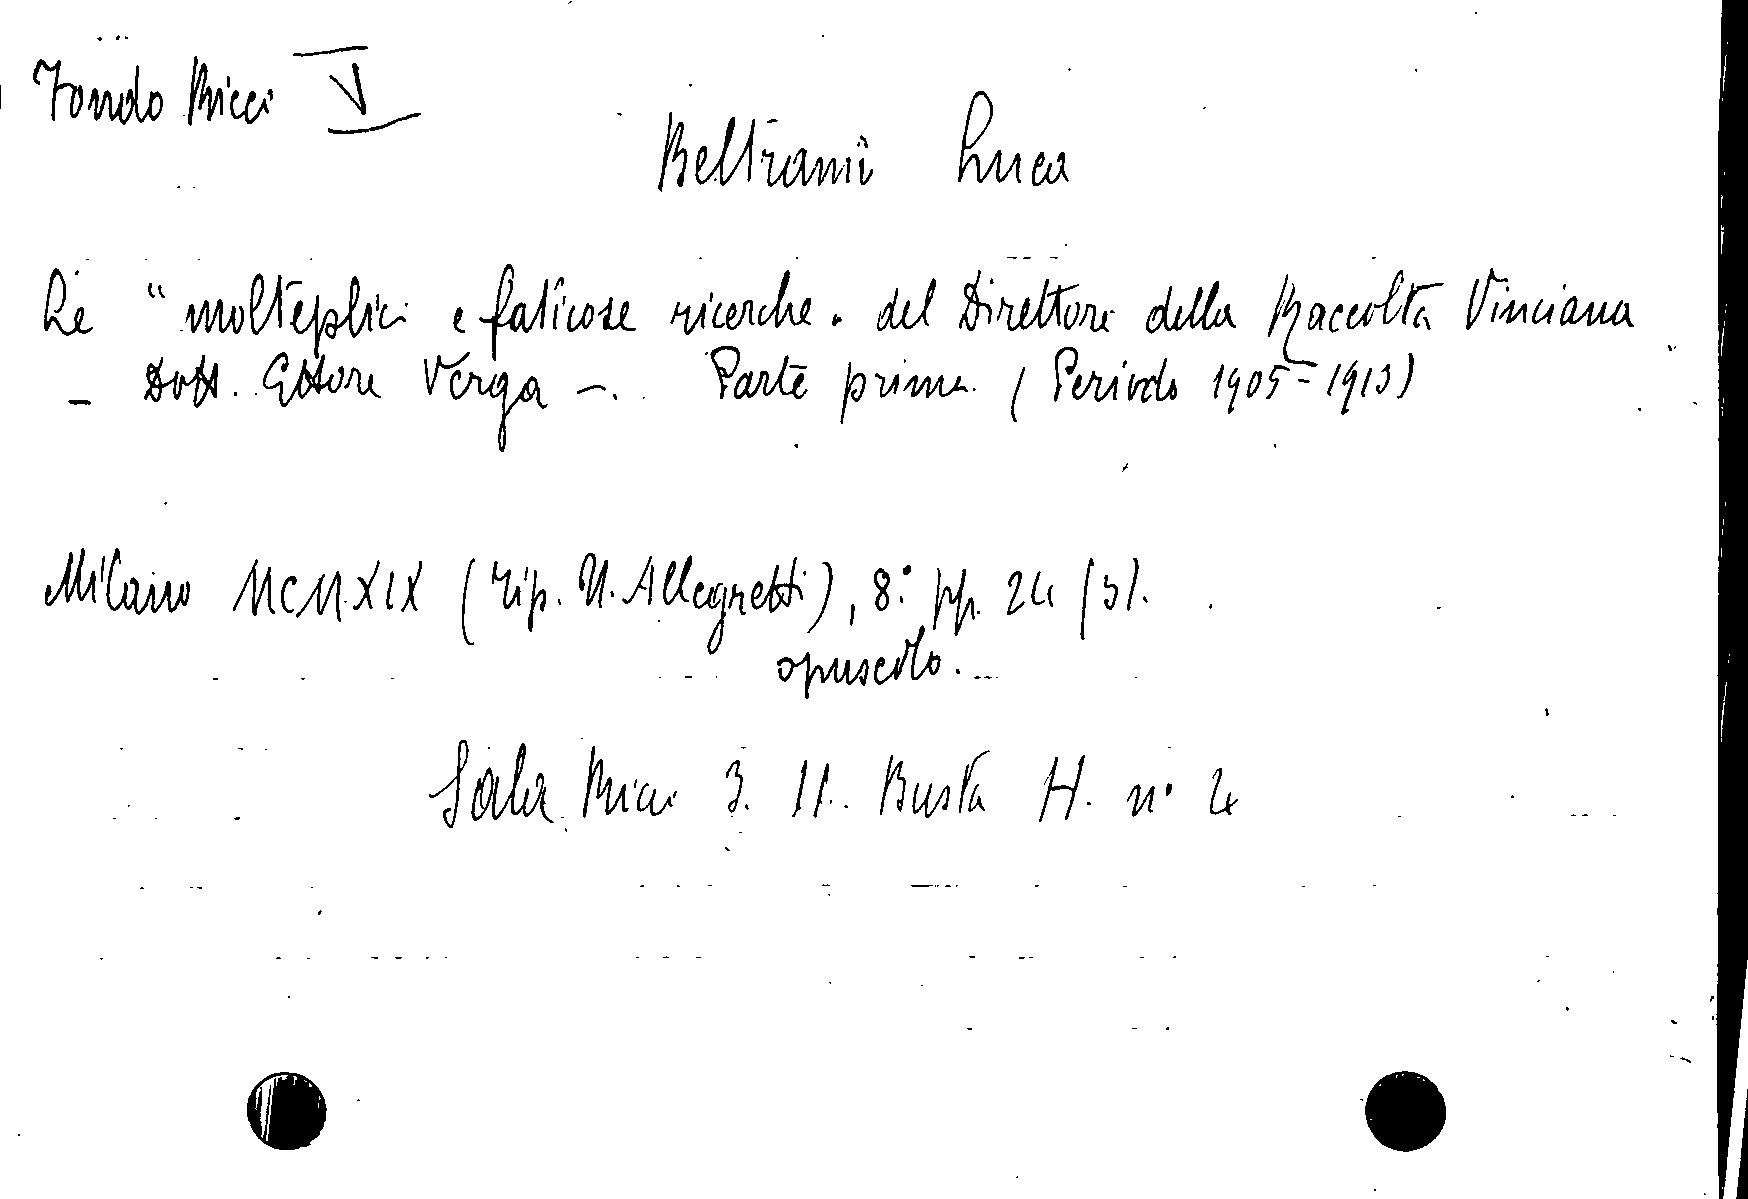 Fondo Ricci V
Beltrami Luca
Le "molteplici e faticose ricerche. del Direttore della Raccolta Vinciana
- Dott. Ettore Verga -. Parte prima. (Periodo 1905-1913)
Milano MCMXIX (Tip. U. Allegretti), 8° pp. 24 (3).
opuscolo.
Sala Ricci 3. 11. Busta H. n° 4